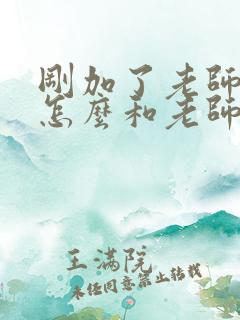 剛加了老師
怎麼和老師
王滿院
未经同意禁止转载